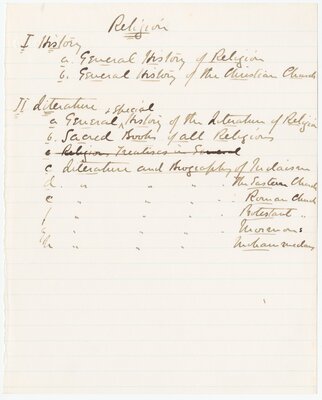 Religion
I History
a. General History of Religion
b. General History of the Christian Church
II Literature & Special
a General History of the Literature of Religion
b. Sacred Books of all Religions
c Religious Treatises in General
c Literature and Biography of Judaism
d. " " " the Eastern Church
e " " " Roman Church
f " " " Protestant "
g " " " Mormons
h " " " Mohammedans